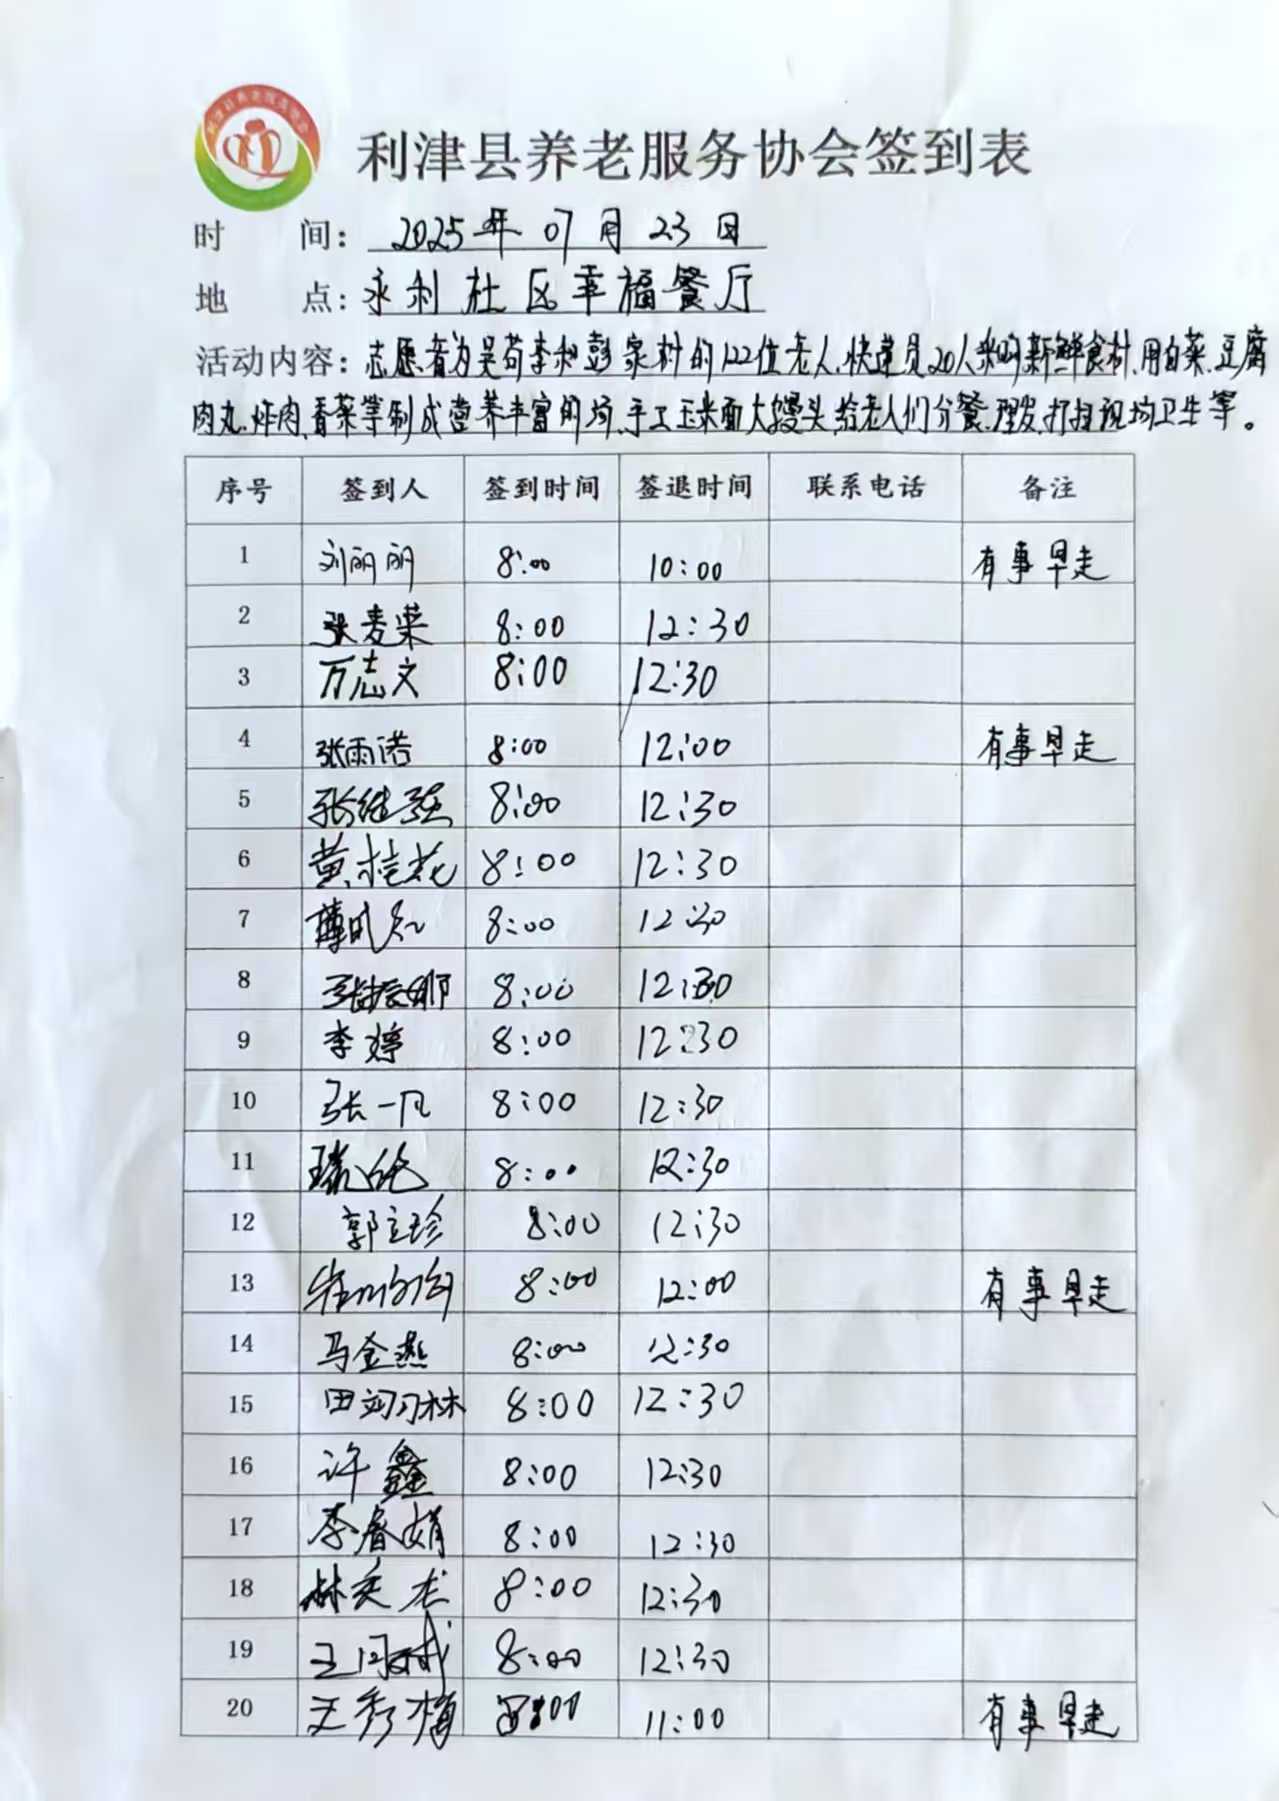 利津县养老服务协会签到表
时 间：2025年07月23日
地 点：永利社区幸福餐厅
活动内容：志愿者为吴苟李和彭家村的122位老人、快递员20人采购新鲜食材、用白菜、豆腐
肉丸、炸肉、香菜等制成营养丰富的汤、手工玉米面大馒头、给老人们分餐、理发、打扫现场卫生等。
序号 签到人 签到时间 签退时间 联系电话 备注
1 刘丽丽 8:00 10:00 有事早走
2 张麦荣 8:00 12:30
3 万志文 8:00 12:30
4 张雨诺 8:00 12:00 有事早走
5 张继强 8:00 12:30
6 黄桂花 8:00 12:30
7 8:00 12:30
8 8:00 12:30
9 李婷 8:00 12:30
10 张一凡 8:00 12:30
11 8:00 12:30
12 郭立珍 8:00 12:30
13 8:00 12:00 有事早走
14 马金燕 8:00 12:30
15 田 8:00 12:30
16 许鑫 8:00 12:30
17 李春娟 8:00 12:30
18 林 8:00 12:30
19 王 8:00 12:30
20 王秀梅 8:00 11:00 有事早走